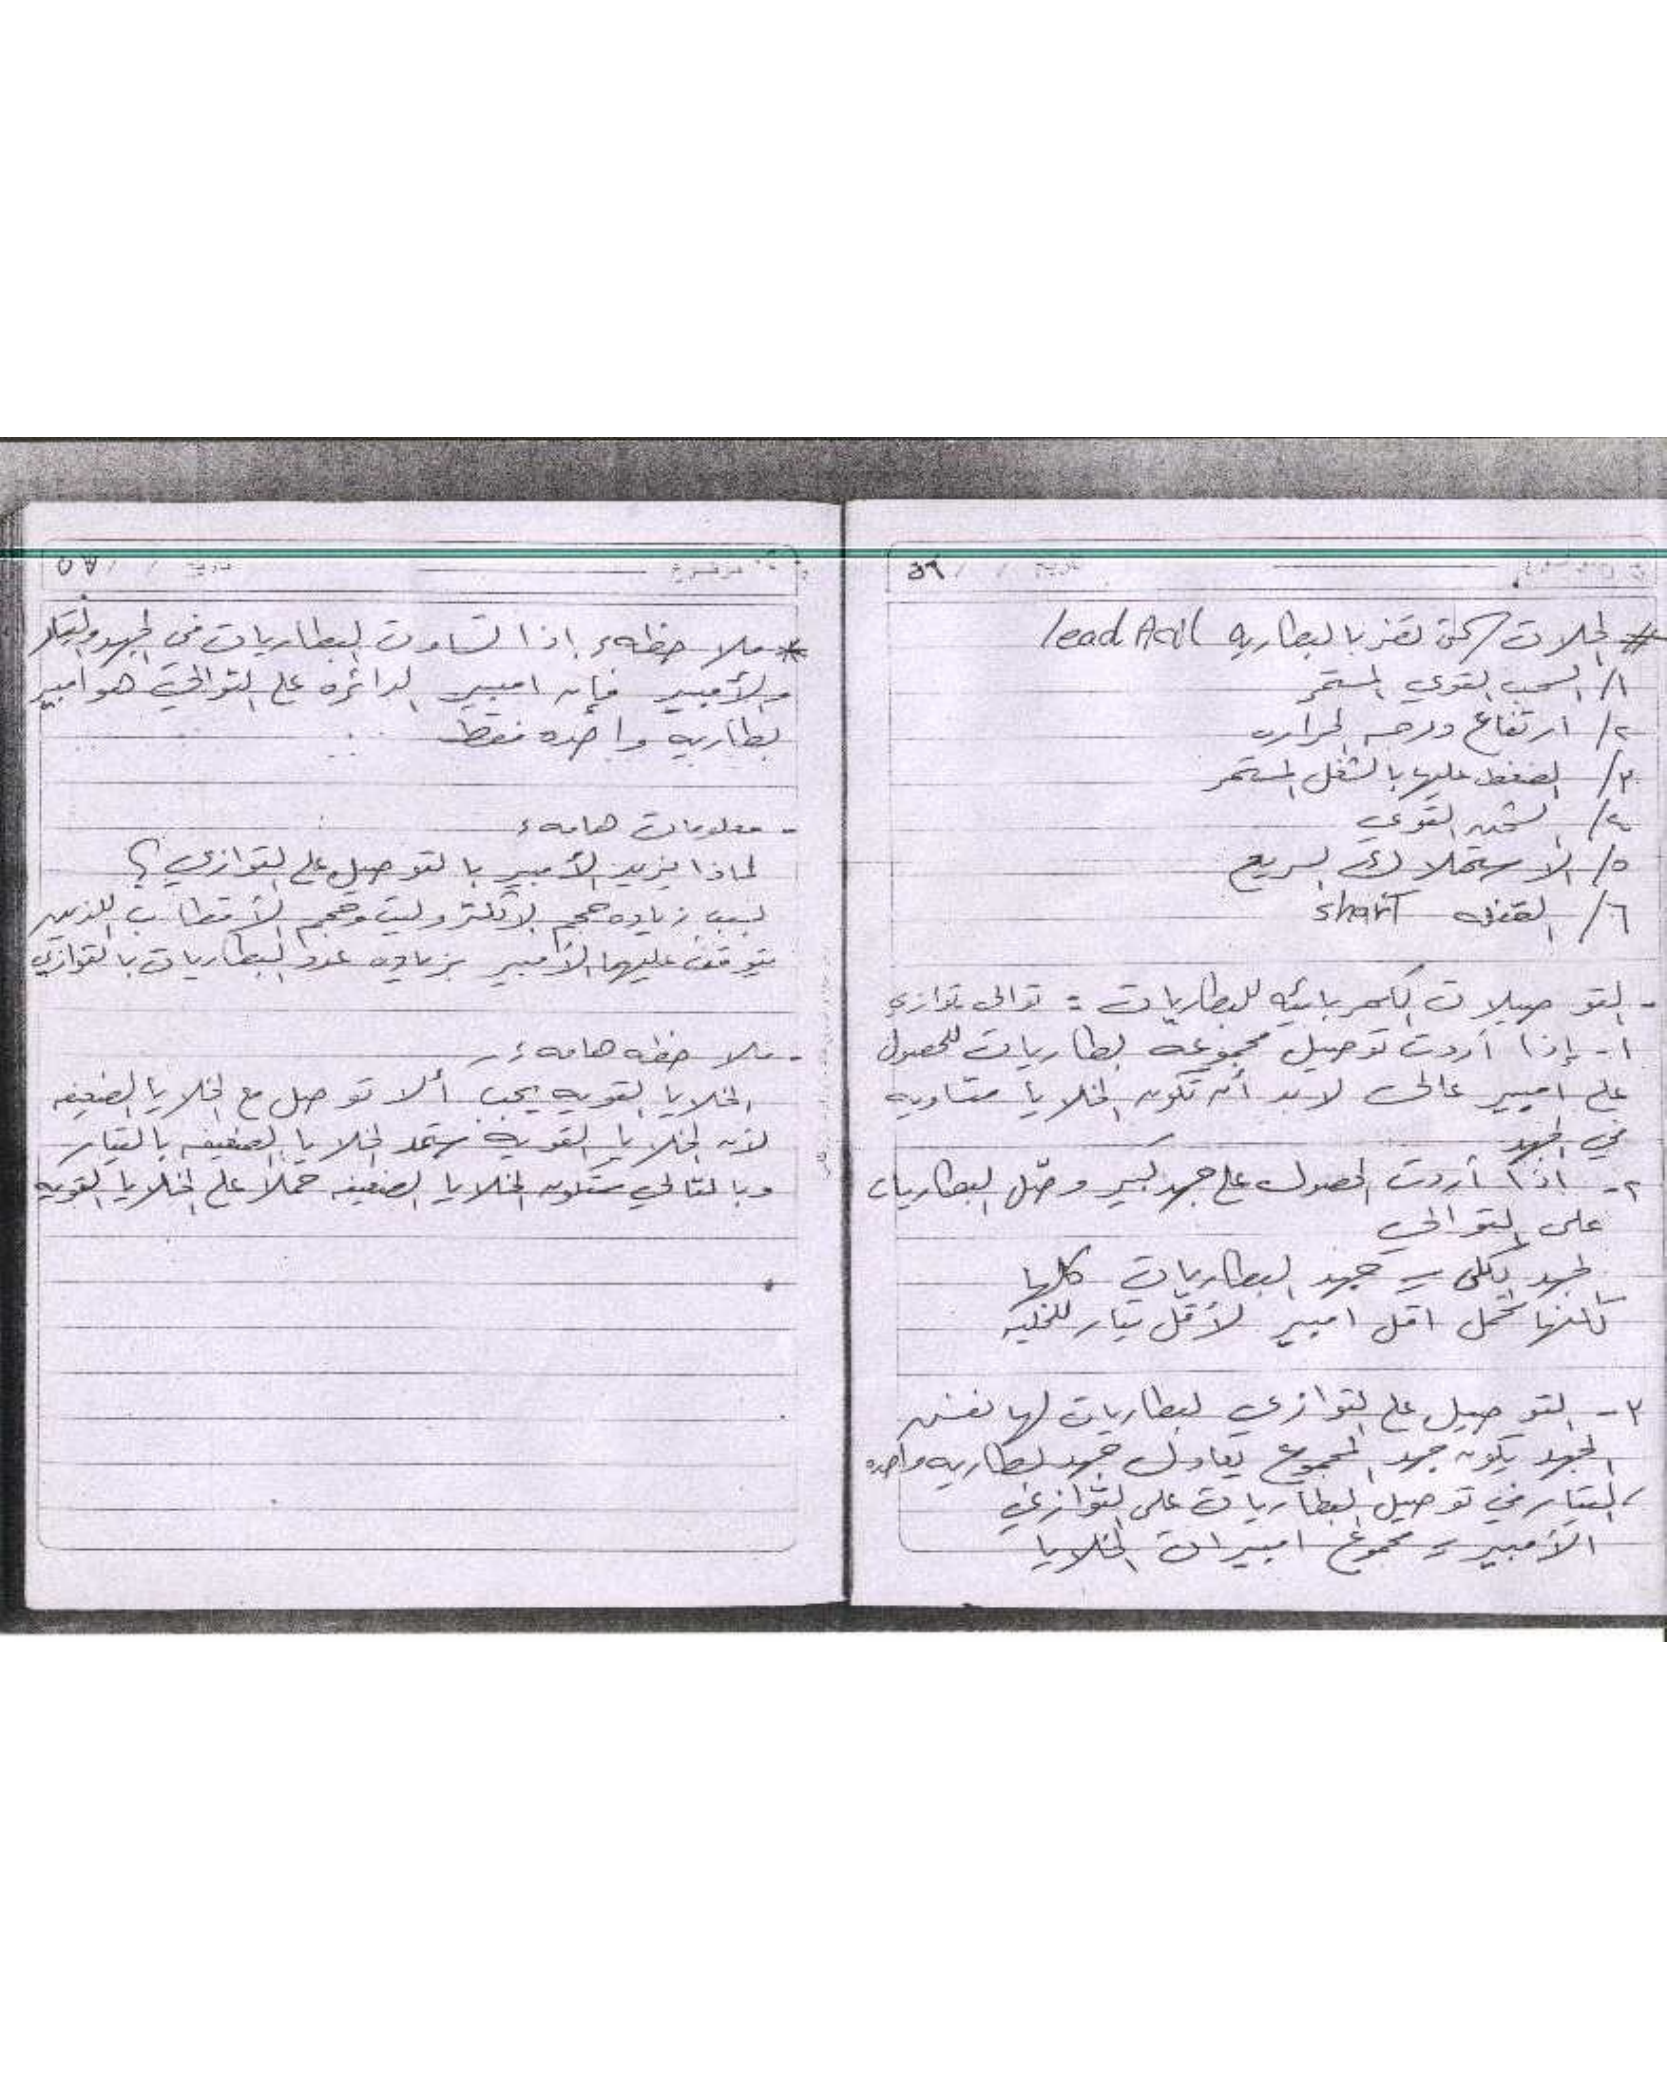 ٥٦
# الحالات التي تضر بالبطاريه lead Acil
١/ السحب القوي المستمر
٢/ ارتفاع درجه الحراره
٣/ الضغط عليها بالشغل المستمر
٤/ الشحن القوي
٥/ الاستهلاك السريع
٦/ القفله short
- التوصيلات الكهربائيه للبطاريات = توالي توازي
١- إذا أردت توصيل مجموعه بطاريات للحصول
على امبير عالى لابد أن تكون الخلايا متساويه
في الجهد
٢- اذا أردت الحصول على جهد كبير وصّل البطاريات
على التوالي
الجهد الكلى = جهد البطاريات كلها
لكنها تحمل اقل امبير لأقل تيار للخليه
٣- التوصيل على التوازي لبطاريات لها نفس
الجهد يكون جهد المجموع يعادل جهد بطاريه واحده
، التيار في توصيل البطاريات على التوازي
الأمبير = مجموع امبيرات الخلايا
٥٧
* ملاحظه، اذا تساوت البطاريات في الجهد والتيار
والأمبير فإن امبير الدائره على التوالي هو امبير
بطاريه واحده فقط
- معلومات هامه:
لماذا يزيد الأمبير بالتوصيل على التوازي؟
بسبب زياده حجم الالكتروليت وحجم الأقطاب اللذين
يتوقف عليهما الأمبير بزياده عدد البطاريات بالتوازي
- ملاحظه هامه:-
الخلايا القويه يجب ألا توصل مع الخلايا الضعيفه
لأن الخلايا القويه ستمد الخلايا الضعيفه بالتيار
وبالتالي ستكون الخلايا الضعيفه حملاً على الخلايا القويه